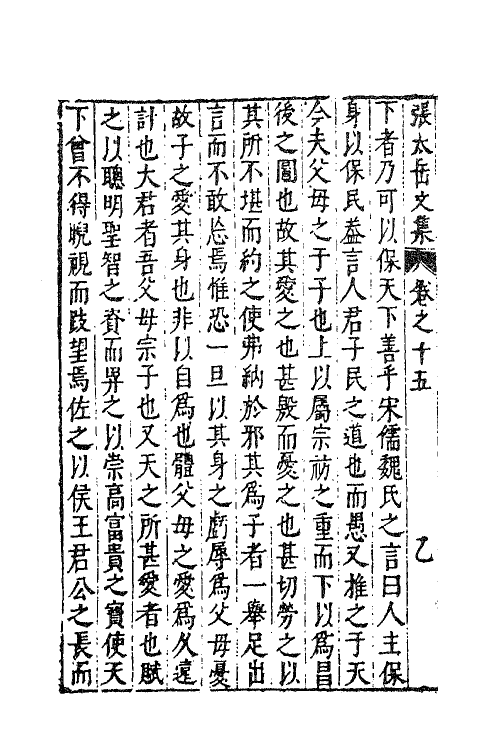 張太岳文集 卷之十五 乙
下者乃可以保天下善乎宋儒魏氏之言曰人主保
身以保民葢言人君子民之道也而愚又推之于天
今夫父母之于子也上以屬宗祊之重而下以爲昌
後之圖也故其愛之也甚殷而憂之也甚切勞之以
其所不堪而約之使弗納於邪其爲子者一舉足出
言而不敢忘焉惟恐一旦以其身之虧辱爲父母憂
故子之愛其身也非以自爲也體父母之愛爲久遠
計也大君者吾父母宗子也又天之所甚愛者也賦
之以聰明聖智之資而畀之以崇高富貴之寳使天
下曾不得睨視而跂望焉佐之以侯王君公之長而